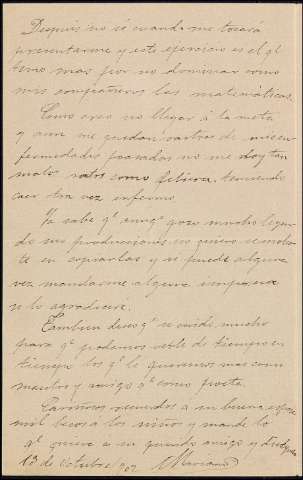 Después no sé cuando me tocará
presentarme y este ejercicio es el qe
temo mas por no dominar como
mis compañeros las matemáticas.
Como creo no llegar á la meta
y aun me quedan rastros de mis en-
fermedades pasadas no me doy tan
malos ratos como pudiera, temiendo
caer otra vez enfermo.
Ya sabe qe aunqe gozo mucho leyen-
do sus producciones no quiero se moles-
te en copiarlas y si puede alguna
vez mandarme alguna impresa
se lo agradeceré.
Tambien deseo qe se cuide mucho
para qe podamos verle de tiempo en
tiempo los qe le queremos mas como
maestro y amigo qe como poeta.
Cariñosos recuerdos a su buena esposa
mil besos á los niños y mande lo
qe quiera a su querido amigo y discípulo
13 de octubre 902 Mariano